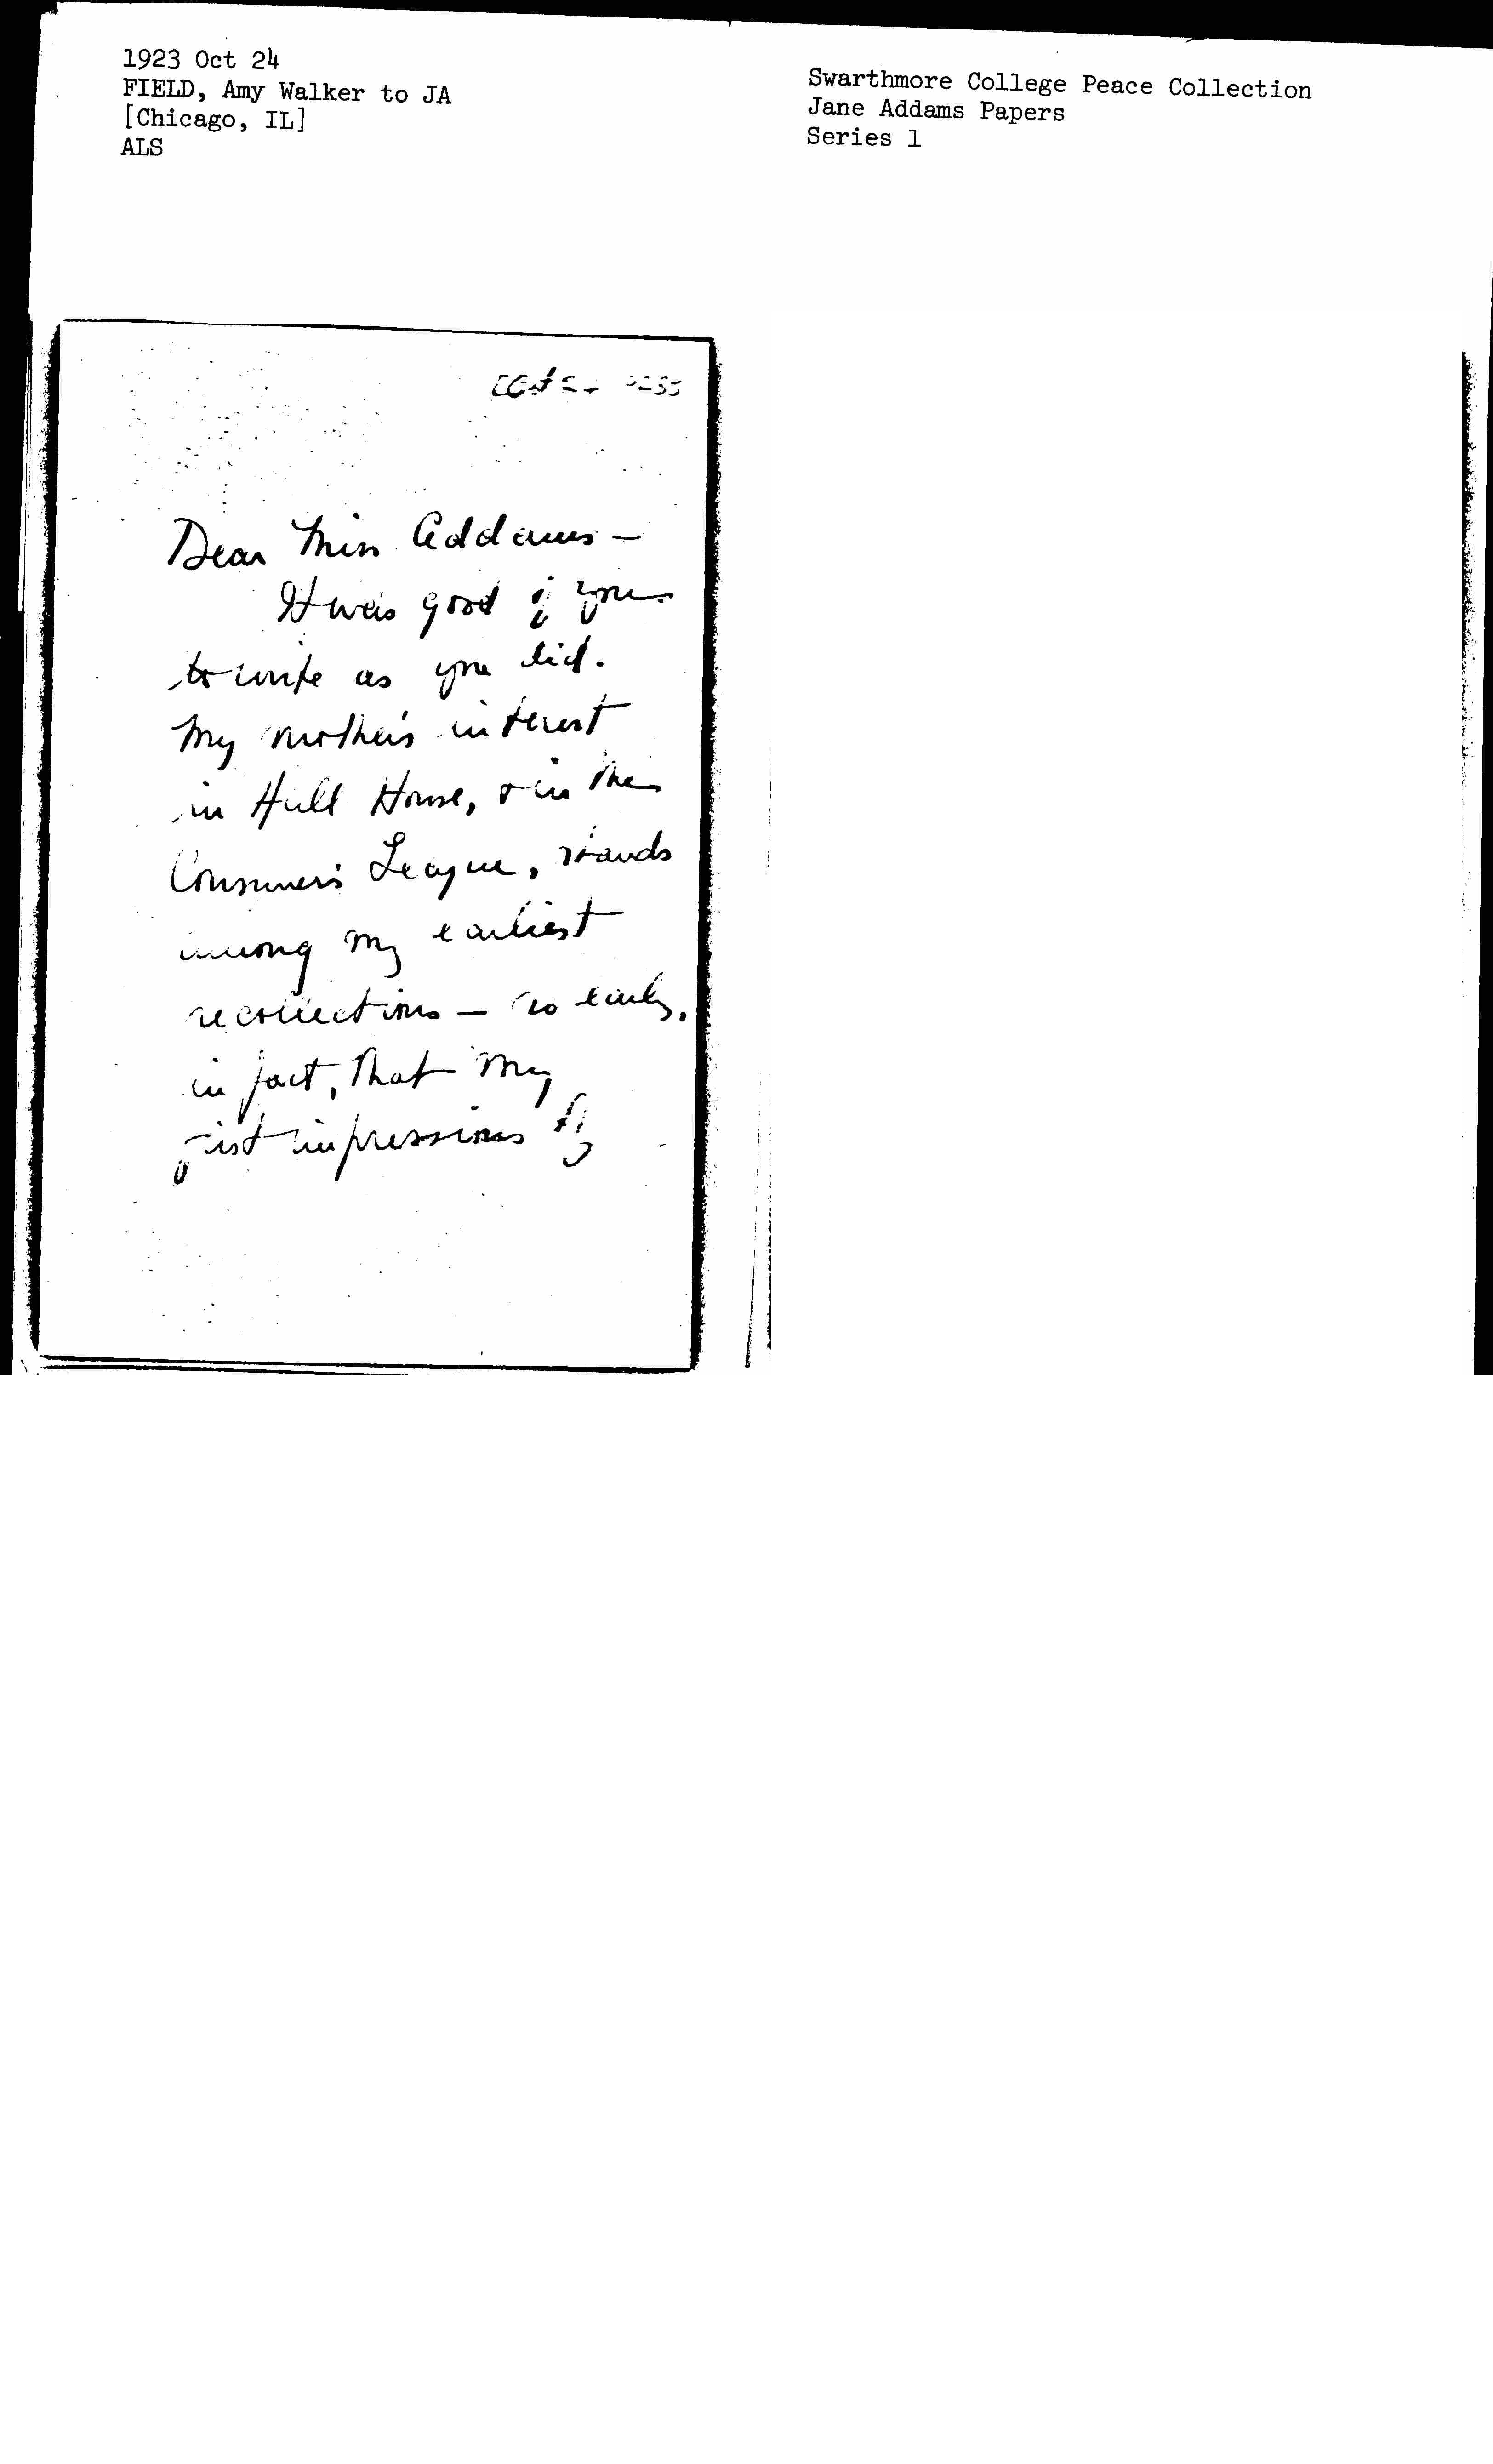 1923 Oct 24
FIELD, Amy Walker to JA
[Chicago, IL]
ALS
Swarthmore College Peace Collection
Jane Addams Papers
Series 1
Dear Miss Addams —
It was good of you
to write as you did.
My mother's interest
in Hull House, & in the
Consumer's League, stands
among my earliest
recollections — so early,
in fact, that my
first impressions of